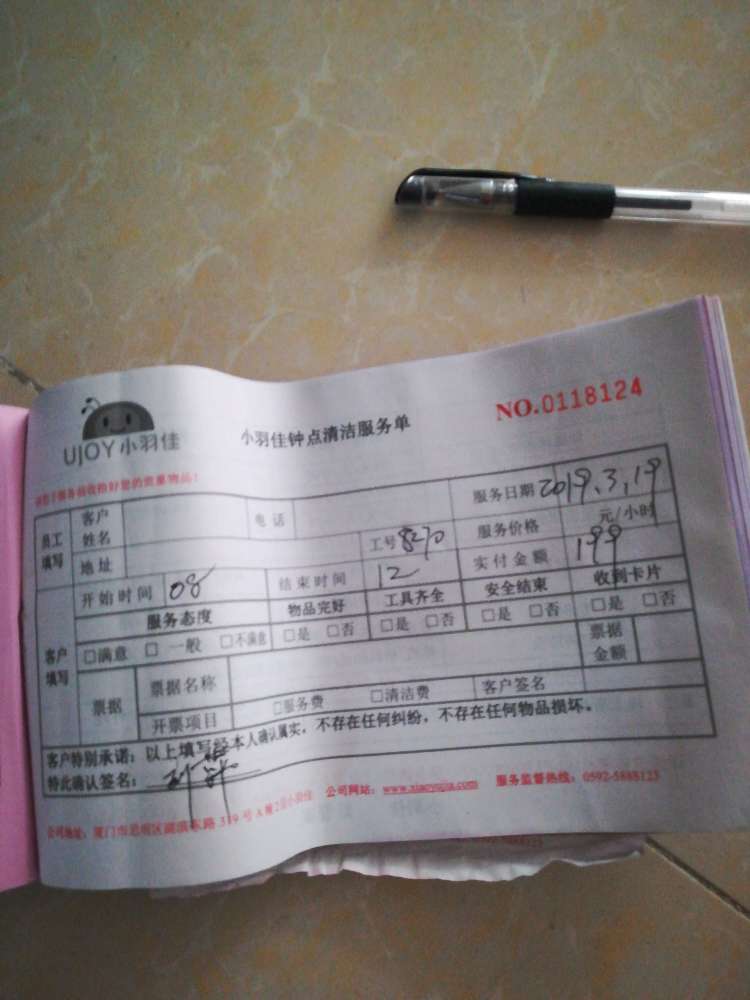 UJOY小羽佳
小羽佳钟点清洁服务单
NO.0118124
员工填写 客户姓名 电话 服务日期 2019.3.19
地址 工号 8270 服务价格 元/小时
开始时间 08 结束时间 12 实付金额 199
客户填写 服务态度 物品完好 工具齐全 安全结束 收到卡片
□满意 □一般 □不满意 □是 □否 □是 □否 □是 □否 □是 □否
票据 票据名称 票据金额
开票项目 □服务费 □清洁费 客户签名
客户特别承诺：以上填写经本人确认属实，不存在任何纠纷，不存在任何物品损坏。
特此确认签名：
公司地址：厦门市思明区湖滨东路319号A幢2层小羽佳 公司网站：www.xiaoyujia.com 服务监督热线：0592-5888123